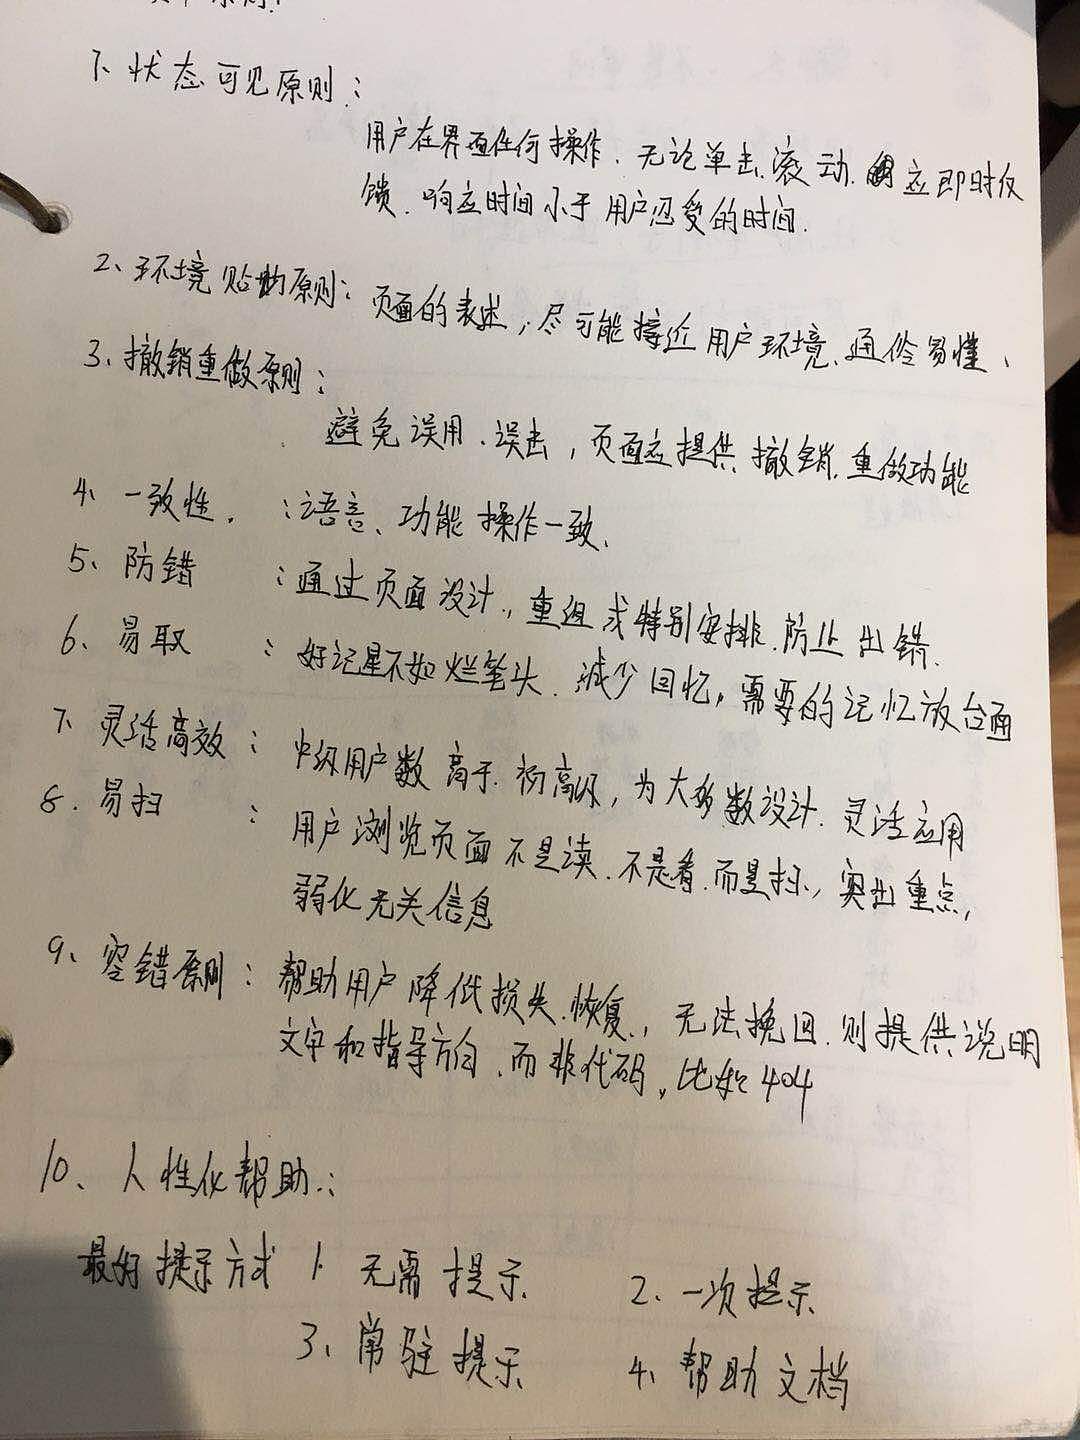 原则：
1、状态可见原则：
用户在界面任何操作、无论单击、滚动、应即时反
馈、响应时间小于用户忍受的时间.
2、环境贴切原则：页面的表述，尽可能接近用户环境、通俗易懂、
3、撤销重做原则：
避免误用、误击，页面应提供撤销、重做功能
4、一致性、：语言、功能操作一致、
5、防错：通过页面设计，重组或特别安排、防止出错、
6、易取：好记星不如烂笔头、减少回忆，需要的记忆放台面
7、灵活高效：中级用户数高于、初高级，为大多数设计、灵活应用
8、易扫：用户浏览页面不是读、不是看、而是扫、突出重点，
弱化无关信息
9、容错原则：帮助用户降低损失、恢复、无法挽回、则提供说明
文字和指导方向、而非代码，比如404
10、人性化帮助：
最好提示方式 1、无需提示 2、一次提示
3、常驻提示 4、帮助文档